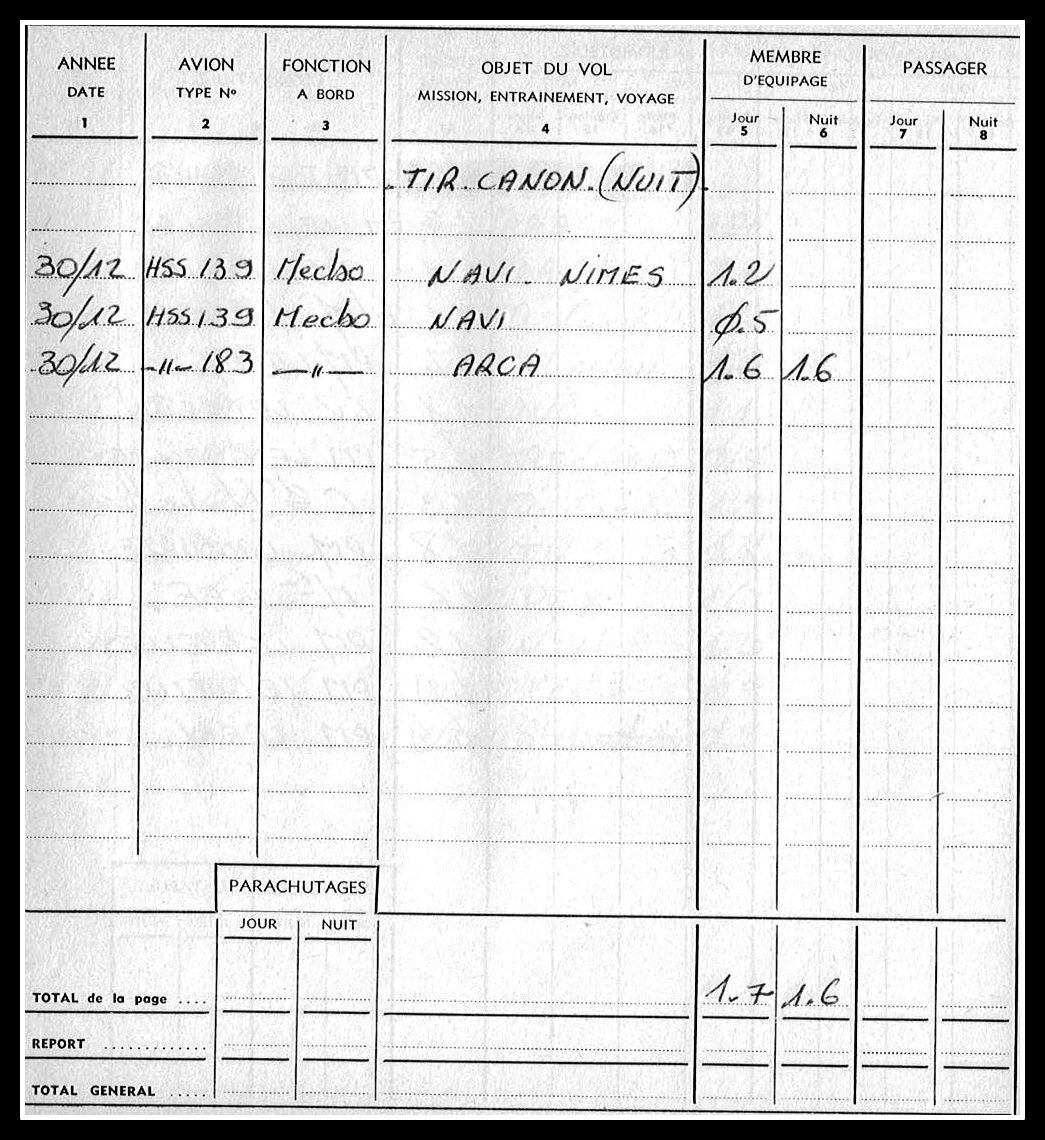 ANNEE AVION FONCTION OBJET DU VOL MEMBRE PASSAGER
DATE TYPE Nº A BORD MISSION, ENTRAINEMENT, VOYAGE D'EQUIPAGE
1 2 3 4 Jour 5 Nuit 6 Jour 7 Nuit 8
TIR CANON (NUIT)
30/12 HSS 139 Mecbo NAVI - NIMES 1.2
30/12 HSS 139 Mecbo NAVI Ø.5
30/12 -"- 183 -"- ARCA 1.6 1.6
PARACHUTAGES
JOUR NUIT
TOTAL de la page .... 1.7 1.6
REPORT ............
TOTAL GENERAL .....